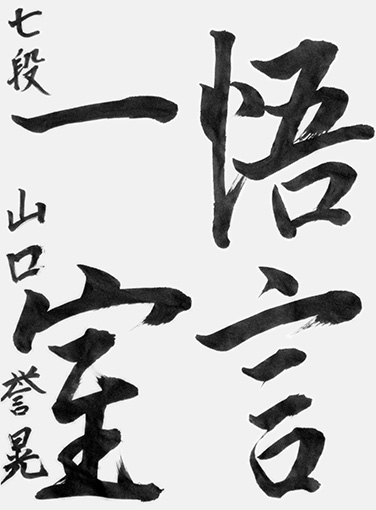 悟言
一室
七段 山口 誉晃